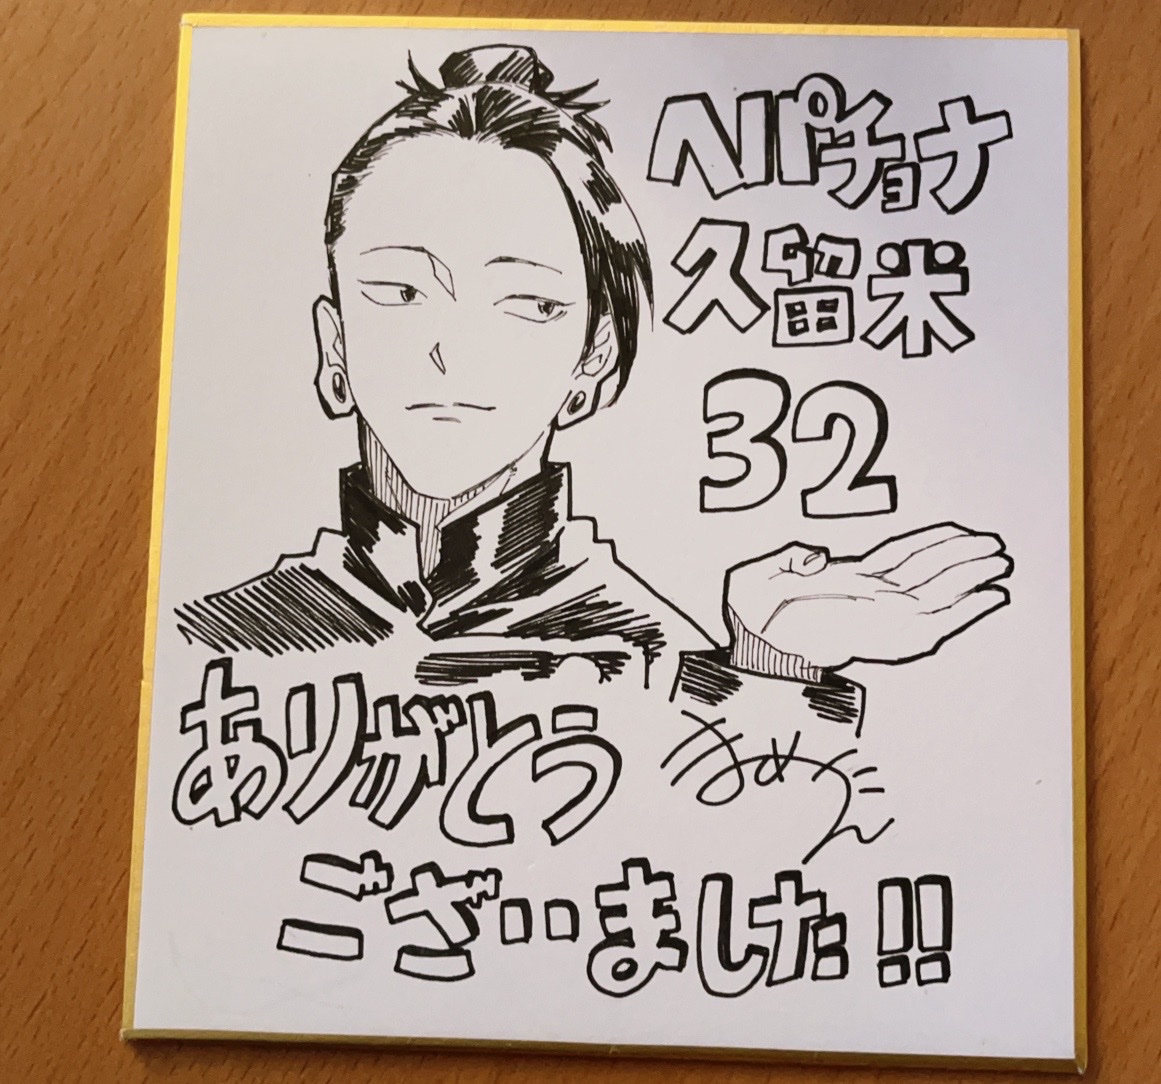 ヘパチョナ
久留米
32
ありがとう
ございました!!